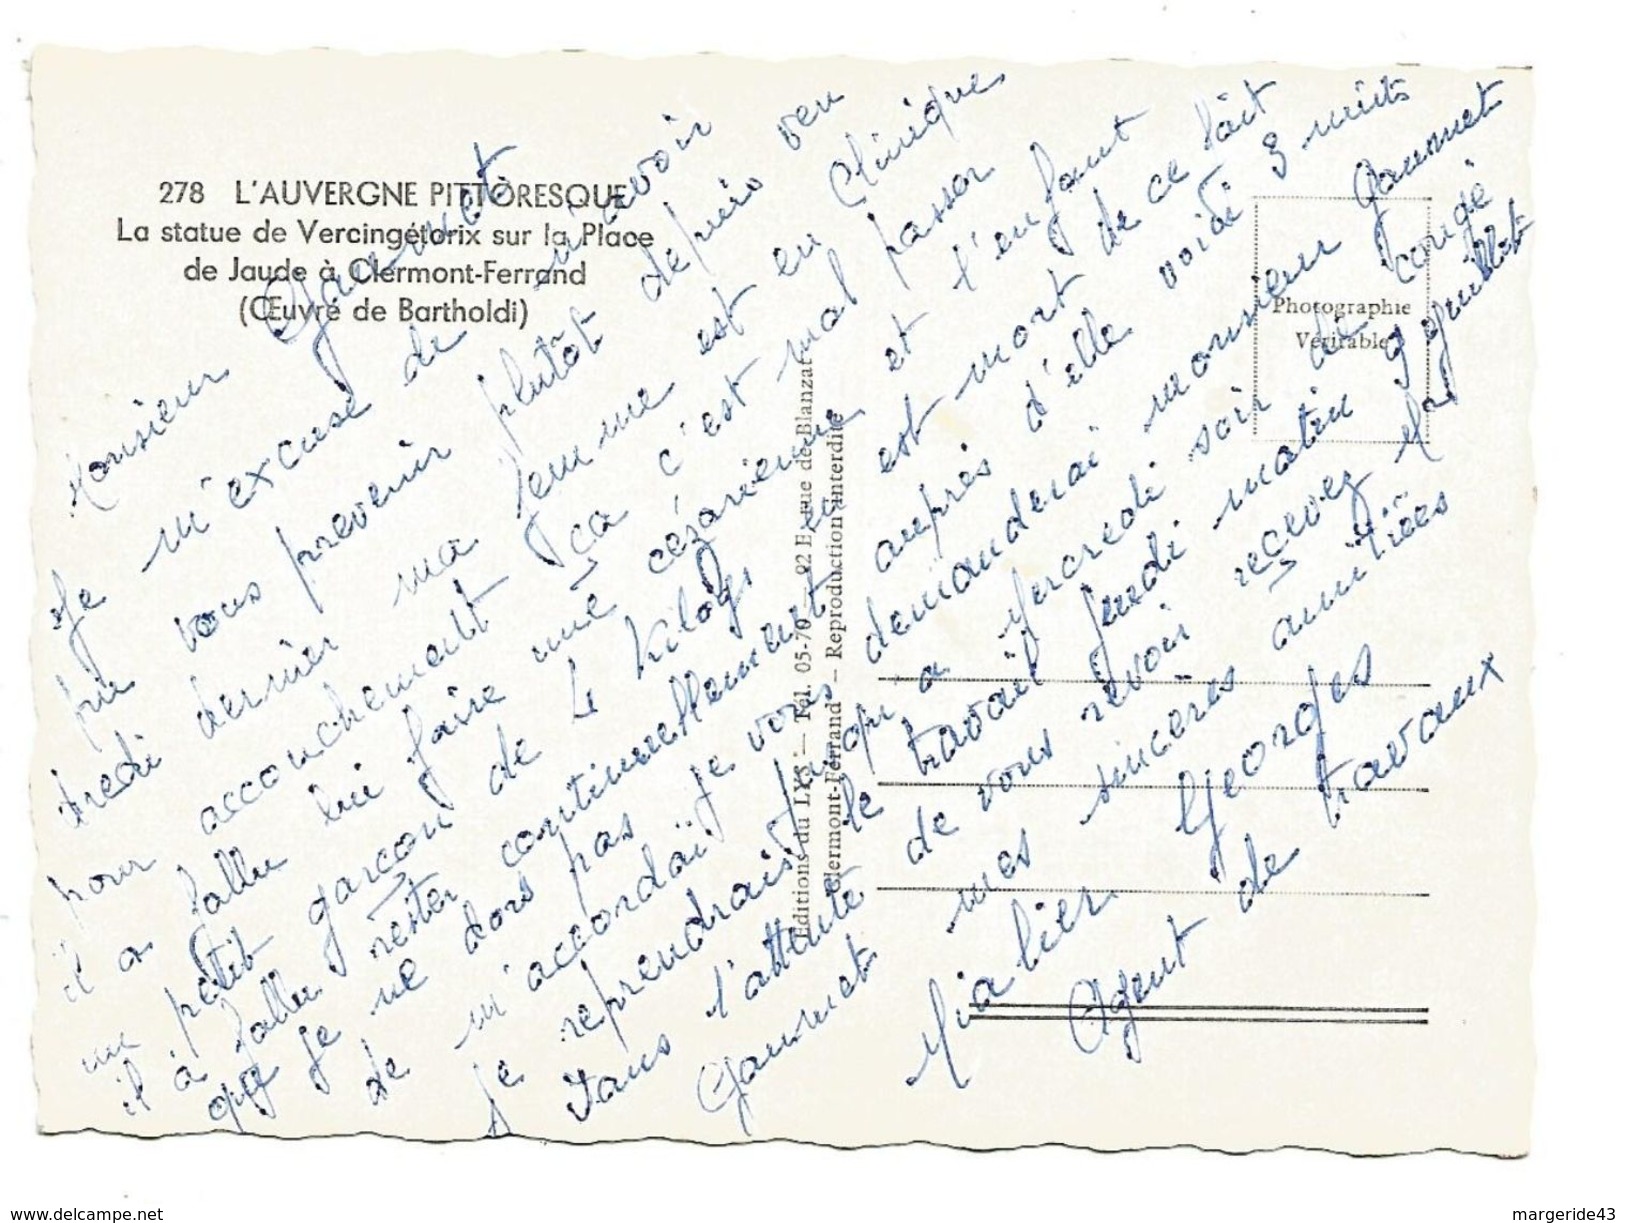 278 L'AUVERGNE PITTORESQUE
La statue de Vercingétorix sur la Place
de Jaude à Clermont-Ferrand
(Œuvre de Bartholdi)
Monsieur Gaumet
Je m'excuse de n'avoir
pu vous prevenir plutôt depuis ven
dredi dernier ma femme est en Clinique
pour accouchement ça c'est mal passer
il a fallu lui faire une cézarienne et l'enfant
un petit garçon de 4 kilogs en est mort de ce fait
il à fallu rester continuellement auprès d'elle voici 3 nuits
que je ne dors pas je vous demanderai monsieur Gaumet
de m'accordai jusqu a Mercredi soir de congé
Je reprendrais le travail jeudi matin 9 juillet
Dans l'attente de vous revoir recevez Mr
Gaumet mes sincères amitiées
Mialier Georges
Agent de travaux
Editions du LYS — Tél. 05-70 — 92 E, rue de Blanzat
Clermont-Ferrand — Reproduction interdite
Photographie
Véritable
www.delcampe.net
margeride43